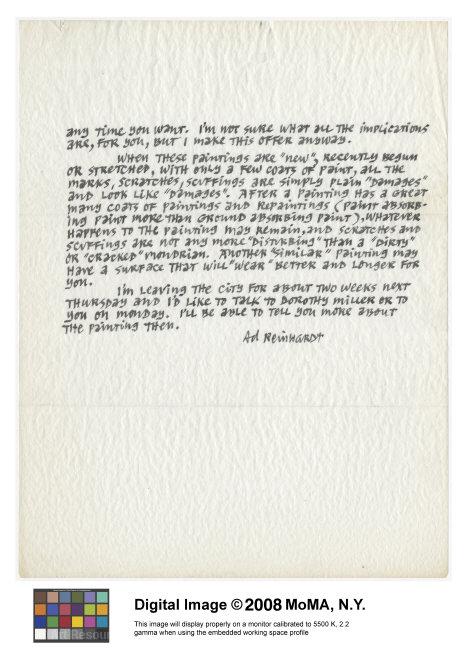 any time you want. I'm not sure what all the implications
are, for you, but I make this offer anyway.
When these paintings are "new", recently begun
or stretched, with only a few coats of paint, all the
marks, scratches, scuffings are simply plain "damages"
and look like "damages". After a painting has a great
many coats of paintings and repaintings (paint absorb-
ing paint more than ground absorbing paint), whatever
happens to the painting may remain, and scratches and
scuffings are not any more "disturbing" than a "dirty"
or "cracked" Mondrian. Another "similar" painting may
have a surface that will "wear" better and longer for
you.
I'm leaving the city for about two weeks next
Thursday and I'd like to talk to Dorothy Miller or to
you on Monday. I'll be able to tell you more about
the painting then.
Ad Reinhardt
Art Resour
Digital Image © 2008 MoMA, N.Y.
This image will display properly on a monitor calibrated to 5500 K, 2.2
gamma when using the embedded working space profile